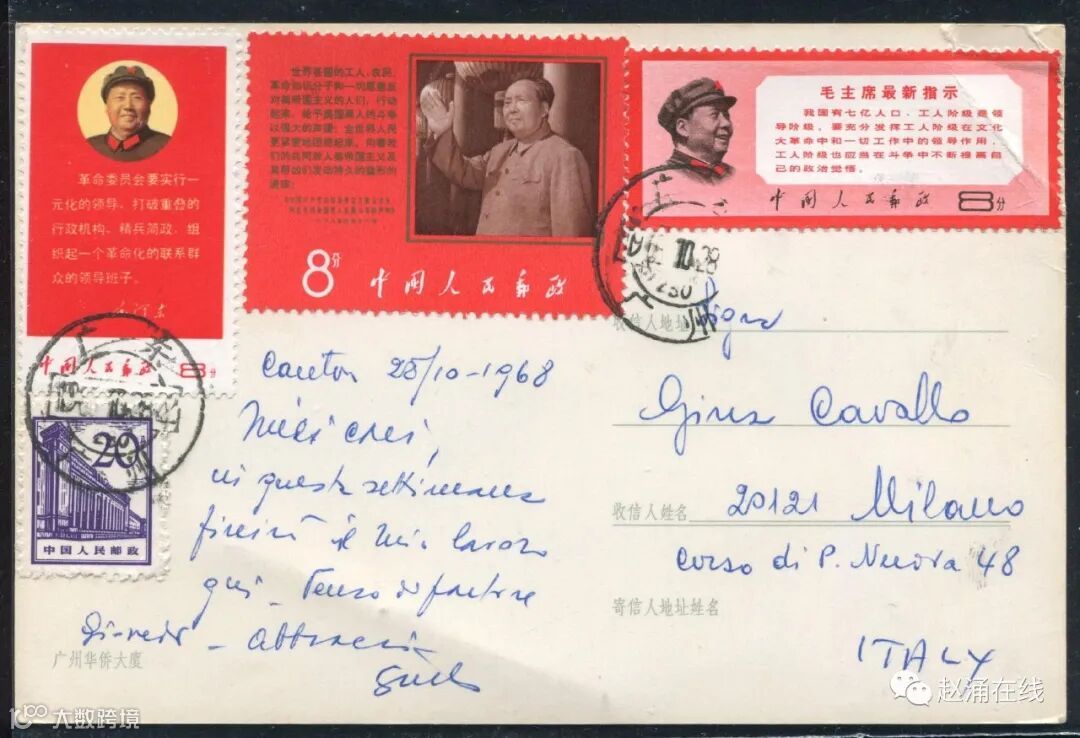 革命委员会要实行一
元化的领导、打破重叠的
行政机构、精兵简政,组
织起一个革命化的联系群
众的领导班子。
毛泽东
中国人民邮政 8分
20
中国人民邮政
世界各国的工人、农民、
革命知识分子和一切愿意反
对美帝国主义的人们,行动
起来,给予美国黑人的斗争
以强大的声援!全世界人民
更紧密地团结起来,向着我
们的共同敌人美帝国主义及
其帮凶们发动持久的猛烈的
进攻!
8分 中国人民邮政
毛主席最新指示
我国有七亿人口,工人阶级是领
导阶级。要充分发挥工人阶级在文化
大革命中和一切工作中的领导作用。
工人阶级也应当在斗争中不断提高自
己的政治觉悟。
中国人民邮政 8分
广东
广州
Canton 25/10-1968
Miei cari,
in questa settimana
finirà il mio lavoro
qui - Penso di partire
Abbracci
广州华侨大厦
收信人地址
Cavallo
收信人姓名
20121 Milano
corso di P. Nuova 48
寄信人地址姓名
ITALY
赵涌在线
大数跨境